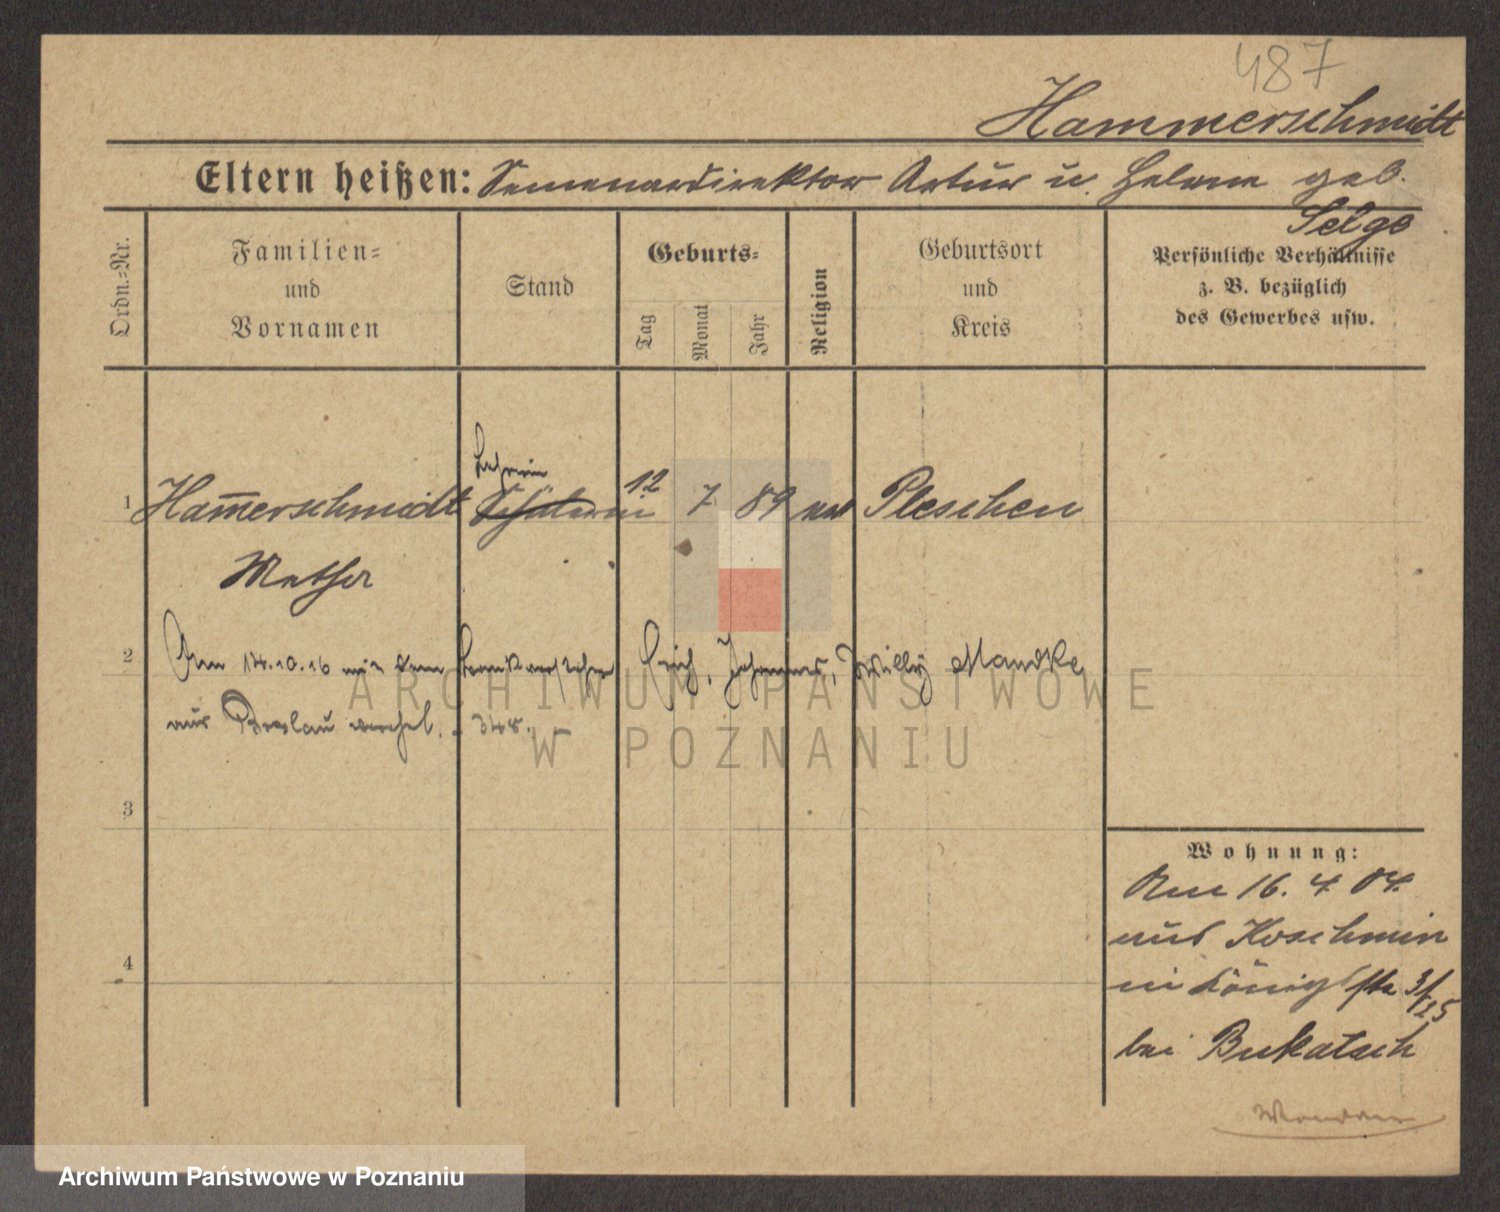 487
Hammerschmidt
Eltern heißen: Semenardirektor Artur u. Helene geb.
Selge
Ordn.=Nr.
Familien=
und
Vornamen
Stand
Geburts=
Tag
Monat
Jahr
Religion
Geburtsort
und
Kreis
Persönliche Verhältnisse
z. B. bezüglich
des Gewerbes usw.
Lehrerin
1 Ham̅erschmidt Schülerin 12 7 89 Pleschen
2 Am 14.10.16 mit dem Erich, Johannes, Willy Mandke
aus Breslau verehel. 348.
3
4
Wohnung:
Am 16. 4. 04.
aus Koschmin
in Königstr 3/25
bei Bukatsch
ARCHIWUM PAŃSTWOWE
W POZNANIU
Archiwum Państwowe w Poznaniu